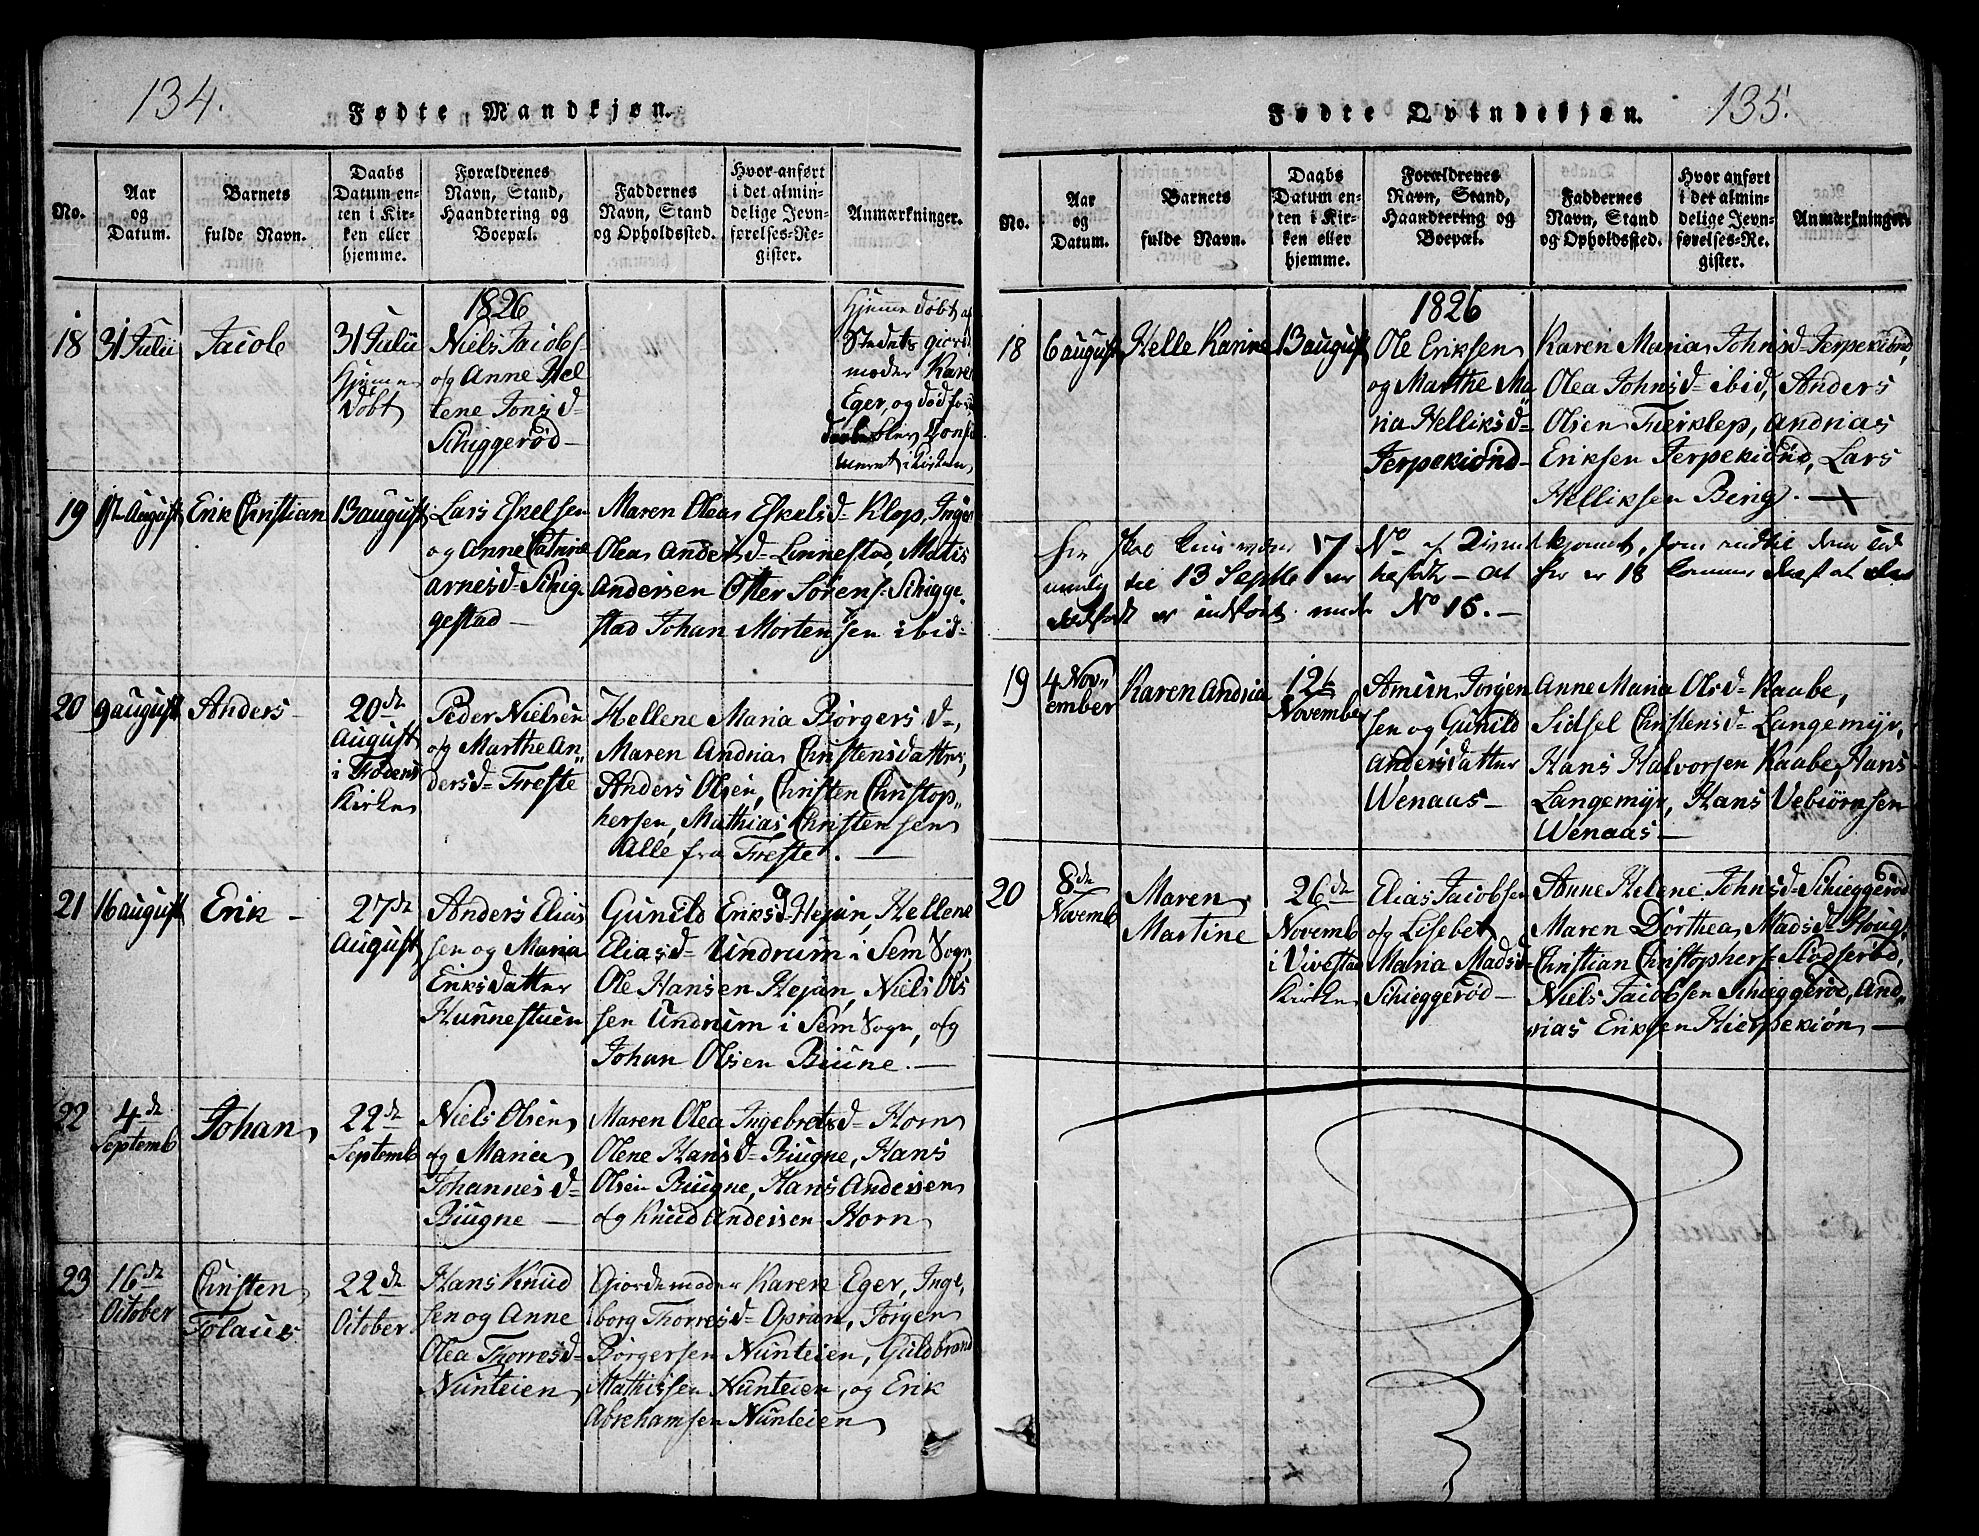 134.
Fødte Mandkjøn.
No.
Aar
og
Datum.
Barnets
fulde Navn.
Daabs
Datum en-
ten i Kir-
ken eller
hjemme.
Forældrenes
Navn, Stand,
Haandtering og
Boepæl.
Faddernes
Navn, Stand
og Opholdssted.
Hvor anført
i det almin-
delige Jevn-
førelses-Re-
gister.
Anmærkninger.
1826
18
31 Julii
Jacob
31 Julii
hjemme
døbt
Niels Jacobs
og Anne Hel
lene Jonsd-
Schiggerød-
hjemme døbt af
Stedets giorde
moder Karen
Eger, og død før
19
Erik Christian
13 august
Lars Eskelsen
og Anne Catrine
arnesd- Schig
gestad-
Maren Olea Eskelsd- Klop, Inger
Olea Andersd- Linnestad, Matis
Andersen Ofter Sørens- Schigge-
stad Johan Mortensen ibid-
20
9 august
Anders-
20de
august
i
Kirke
Peder Nielsen
og Marthe An"
dersd- Freste
Hellene Maria Børgersd-,
Maren Andrea Christensdatter,
Anders Olsen, Christen Christop"
hersen, Mathias Christensen
Alle fra Freste. —
21
16 august
Erik -
27de
august
Anders Elias
sen og Maria
Eriksdatter
Hunnestuen
Gunild Eriksd- Hejan, Hellene
Eliasd- Undrum i Sem Sogn,
Ole Hansen Hejan, Niels Ols
sen Undrum i Sem Sogn, og
Johan Olsen Biune. —
22
4de
Septemb
Johan
22de
Septemb
Niels Olsen
og Maria
Johannesd-
Biugne —
Maren Olea Ingebretsd- Horn
Olene Hansd- Biugne, Hans
Olsen Biugne, Hans Andersen
og Knud Andersen Horn
23
16de
October
Christen
Tolaus
22de
October
Hans Knud
sen og Anne
Olea Thorresd-
Nunteien
Giordemoder Karen Eger, Inge
borg Thorresd- Opran, Jørgen
Børgersen Nunteien, Guldbrand
Mathissen Nunteien, og Erik
Abrehamsen Nunteien
135.
Fødte Qvindekjøn.
No.
Aar
og
Datum.
Barnets
fulde Navn.
Daabs
Datum en-
ten i Kir-
ken eller
hjemme.
Forældrenes
Navn, Stand,
Haandtering og
Boepæl.
Faddernes
Navn, Stand
og Opholdssted.
Hvor anført
i det almin-
delige Jevn-
førelses-Re-
gister.
Anmærkninger.
1826
18
6 august
Helle Karine
13 august
Ole Eriksen
og Marthe Ma
ria Helliksd-
Jerpekiønd-
Karen Maria Johnsd- Jerpekiønd,
Olea Johnsd- ibid, Anders
Olsen Fierklep, andrias
Eriksen Jerpekiønd, Lars
Helliksen Berg. —
17 No af Qvindekjønnet, som
til 13 Septbr er
er indført under No 15. —
19
4 Nov"
ember
Karen Andria
12te
November
Amun Jørgen
sen og Gunild
andersdatter
Wenaas-
Anne Maria Olsd- Raabe,
Sidsel Christensd- Langemyr,
Hans Halvorsen Raabe, Hans
Langemyr, Hans Vebiørnsen
Wenaas —
20
8de
Novemb
Maren
Martine
26de
Novemb
i Vivestad
Kirke
Elias Jacobsen
og Lisebet
Maria Madsd-
Schieggerød-
Anne Helene Johnsd- Schieggerød
Maren Dorthea Madsd- Houg,
Christian Christophers- Slodserød,
Niels Jacobsen Schieggerød, And"
rias Eriksen Hierpekiøn —